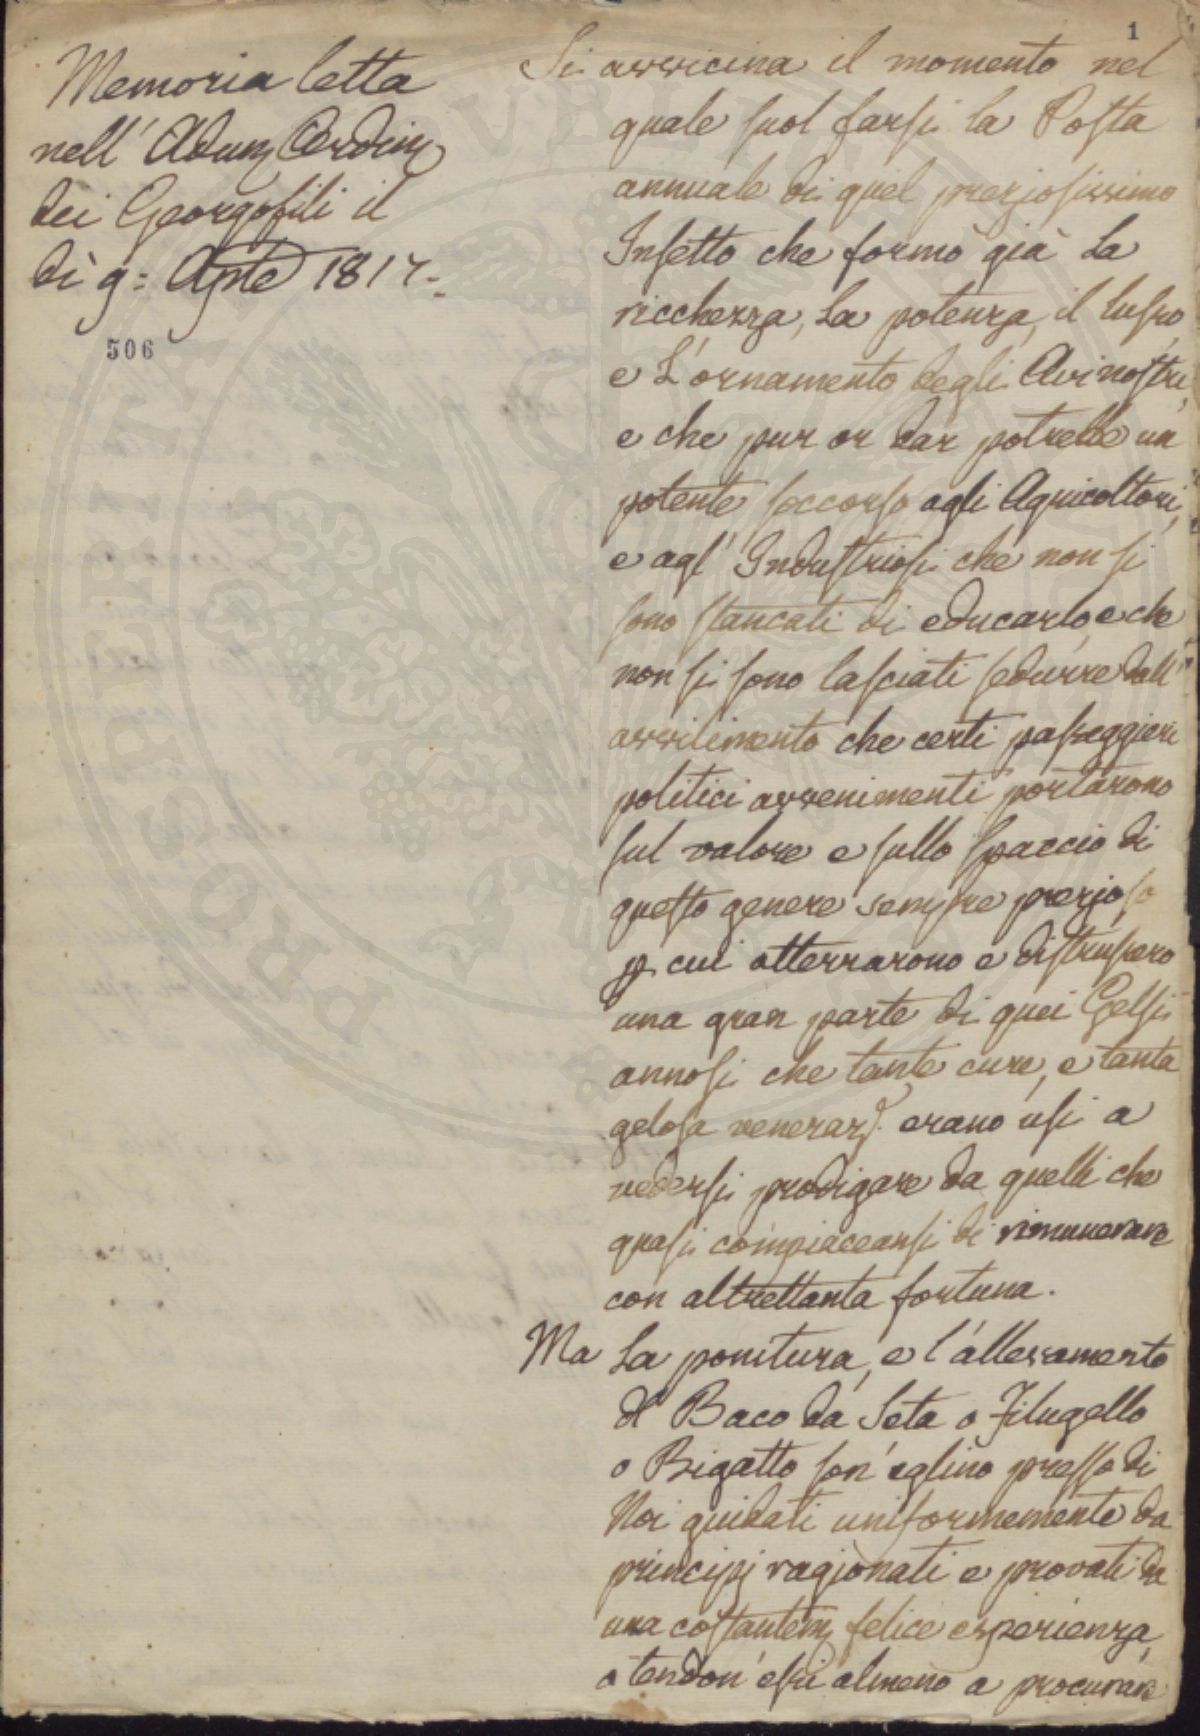 1
Memoria letta
nell' Adunz Ordinz
dei Georgofili il
dì 9: Aprle 1817.
506
Si avvicina il momento nel
quale suol farsi la Posta
annuale di quel preziosissimo
Insetto che formò già la
ricchezza, la potenza, il lusso,
e L'ornamento degli Avi nostri,
e che pur or dar potrebbe un
potente soccorso agli Agricoltori,
e agl' Industriosi che non si
sono stancati di educarlo, e che
non si sono lasciati sedurre dall'
avvilimento che certi passeggieri
politici avvenimenti portarono
sul valore e sullo spaccio di
questo genere sempre prezioso
p. cui atterrarono e distrussero
una gran parte di quei Gelsi
annosi che tante cure, e tanta
gelosa venerazè. erano usi a
vedersi prodigare da quelli che
quasi compiaceansi di rimunerare
con altrettanta fortuna.
Ma la ponitura, e l'allevamento
del Baco da Seta o Filugello
o Bigatto son' eglino presso di
Noi guidati uniformemente da
principj ragionati e provati da
una costantem felice esperienza,
o tendon' essi almeno a procurare
PUBLICAE
PROSPERITATI